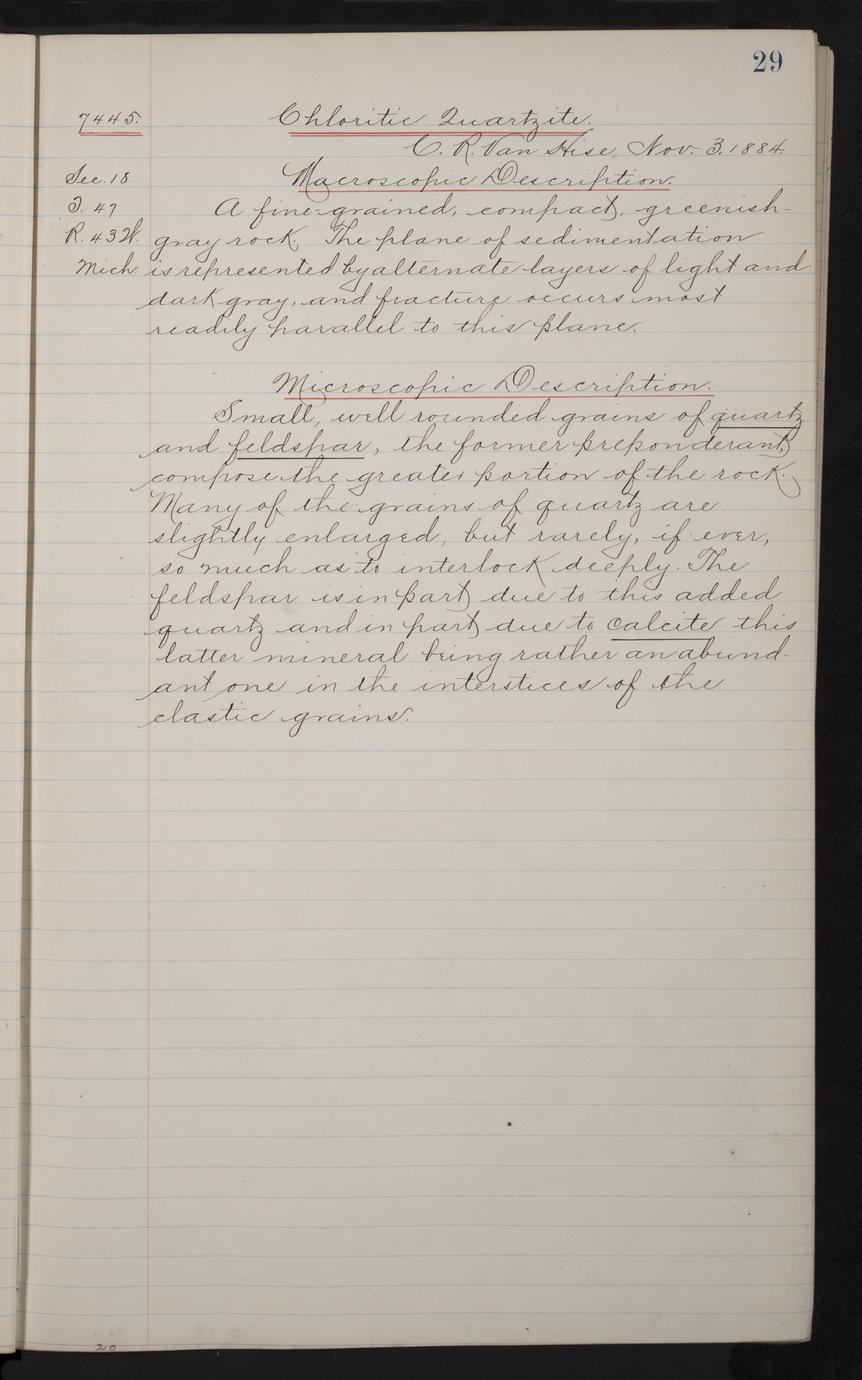 29
7445. Chloritic Quartzite.
C. R. Van Hise, Nov. 3. 1884.
Sec. 18. Macroscopic Description.
T. 47 A fine-grained, compact, greenish-
R. 43 W. gray rock. The plane of sedimentation
Mich. is represented by alternate layers of light and
dark gray, and fracture occurs most
readily parallel to this plane.
Microscopic Description.
Small, well rounded grains of quartz
and feldspar, the former preponderant,
compose the greater portion of the rock.
Many of the grains of quartz are
slightly enlarged, but rarely, if ever,
so much as to interlock deeply. The
feldspar is in part due to this added
quartz and in part due to calcite this
latter mineral being rather an abund-
ant one in the interstices of the
clastic grains.
20